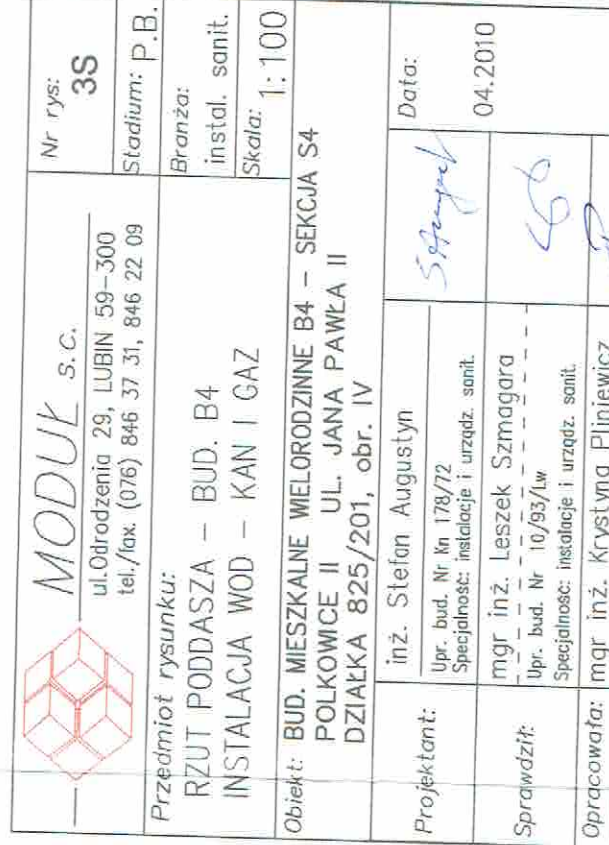 MODUŁ s.c.
ul.Odrodzenia 29, LUBIN 59-300
tel./fax. (076) 846 37 31, 846 22 09
Nr rys:
3S
Przedmiot rysunku:
RZUT PODDASZA - BUD. B4
INSTALACJA WOD - KAN I GAZ
Stadium: P.B.
Branża:
instal. sanit.
Skala: 1:100
Obiekt: BUD. MIESZKALNE WIELORODZINNE B4 - SEKCJA S4
POLKOWICE II UL. JANA PAWŁA II
DZIAŁKA 825/201, obr. IV
Projektant:
inż. Stefan Augustyn
Upr. bud. Nr Kn 178/72
Specjalność: instalacje i urządz. sanit.
Data:
04.2010
Sprawdził:
mgr inż. Leszek Szmagara
Upr. bud. Nr 10/93/Lw
Specjalność: instalacje i urządz. sanit.
Opracowała: mgr inż. Krystyna Pliniewicz